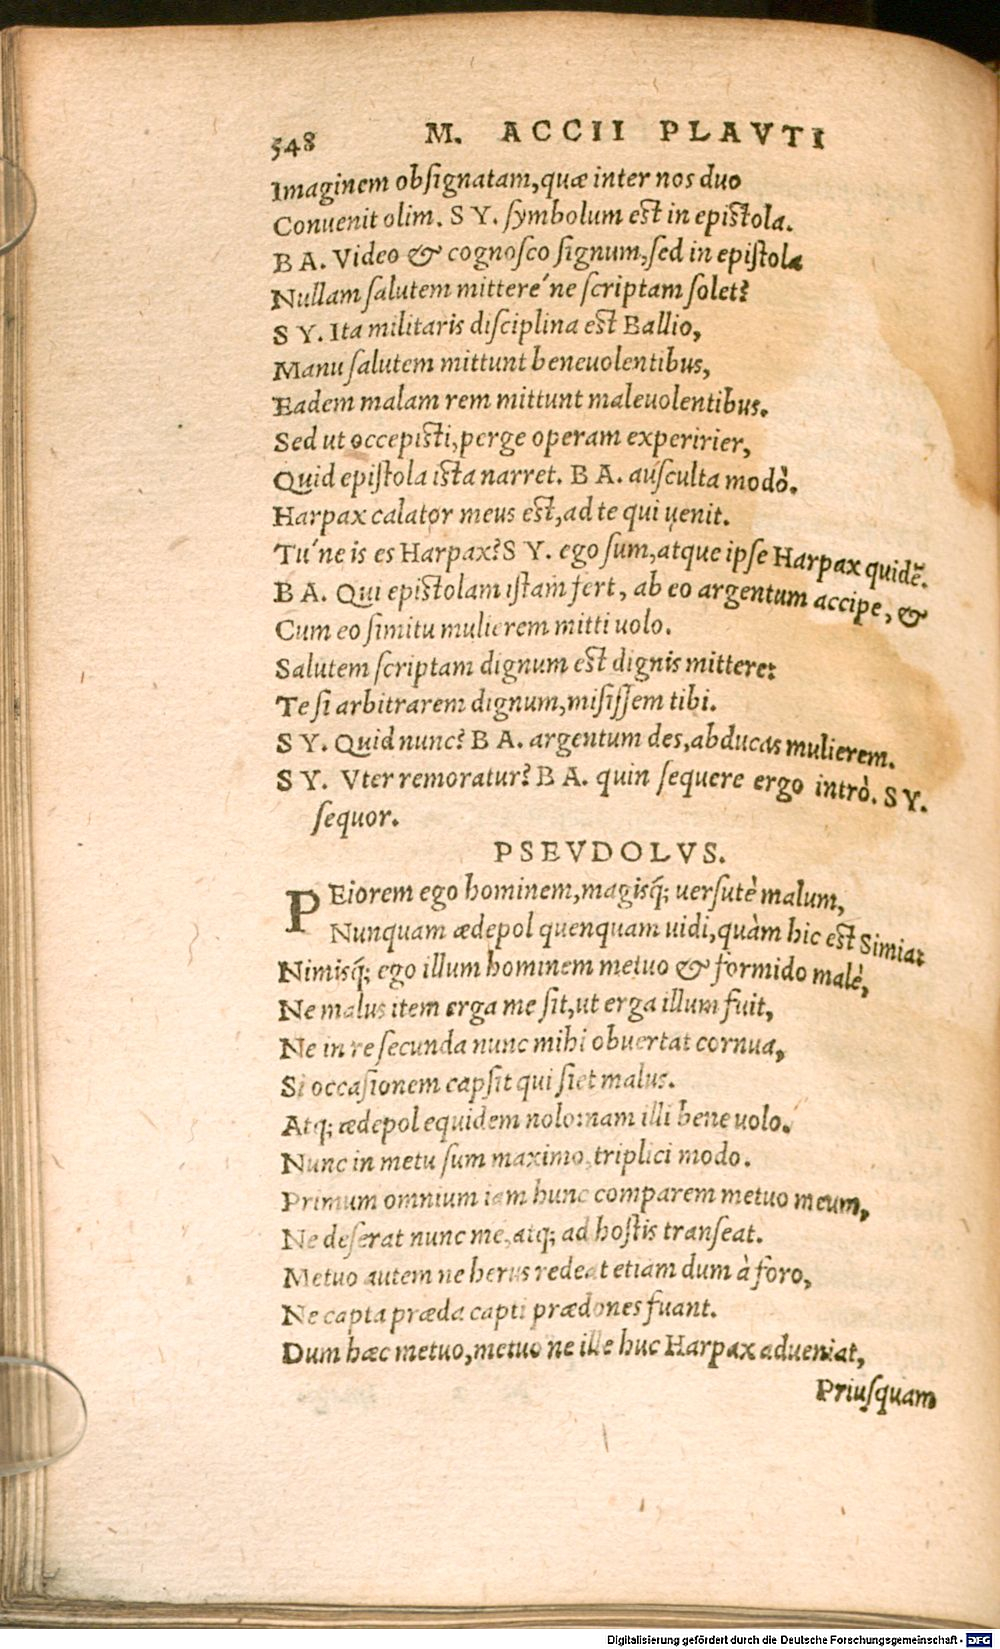 548 M. ACCII PLAVTI
Imaginem obsignatam, quæ inter nos duo
Convenit olim. S Y. symbolum est in epistola.
B A. Video & cognosco signum, sed in epistola
Nullam salutem mittere´ne scriptam solet?
S Y. Ita militaris disciplina est Ballio,
Manu salutem mittunt beneuolentibus,
Eadem malam rem mittunt maleuolentibus.
Sed ut occepisti, perge operam experirier,
Quid epistola ista narret. B A. ausculta modò.
Harpax calator meus est, ad te qui uenit.
Tu´ne is es Harpax? S Y. ego sum, atque ipse Harpax quidẽ.
B A. Qui epistolam istam fert, ab eo argentum accipe, &
Cum eo simitu mulierem mitti uolo.
Salutem scriptam dignum est dignis mittere:
Te si arbitrarem dignum, misissem tibi.
S Y. Quid nunc? B A. argentum des, abducas mulierem.
S Y. Vter remoratur? B A. quin sequere ergo intrò. S Y.
sequor.
PSEVDOLVS.
PEiorem ego hominem, magisq́; uersutè malum,
Nunquam ædepol quenquam uidi, quàm hic est Simia:
Nimisq́; ego illum hominem metuo & formido malè,
Ne malus item erga me sit, ut erga illum fuit,
Ne in re secunda nunc mihi obuertat cornua,
Si occasionem capsit qui siet malus.
Atq; ædepol equidem nolo: nam illi bene uolo.
Nunc in metu sum maximo, triplici modo.
Primum omnium iam hunc comparem metuo meum,
Ne deserat nunc me, atq; ad hostis transeat.
Metuo autem ne herus redeat etiam dum à foro,
Ne capta præda capti prædones fuant.
Dum hæc metuo, metuo ne ille huc Harpax adueniat,
Priusquam
Digitalisierung gefördert durch die Deutsche Forschungsgemeinschaft - DFG